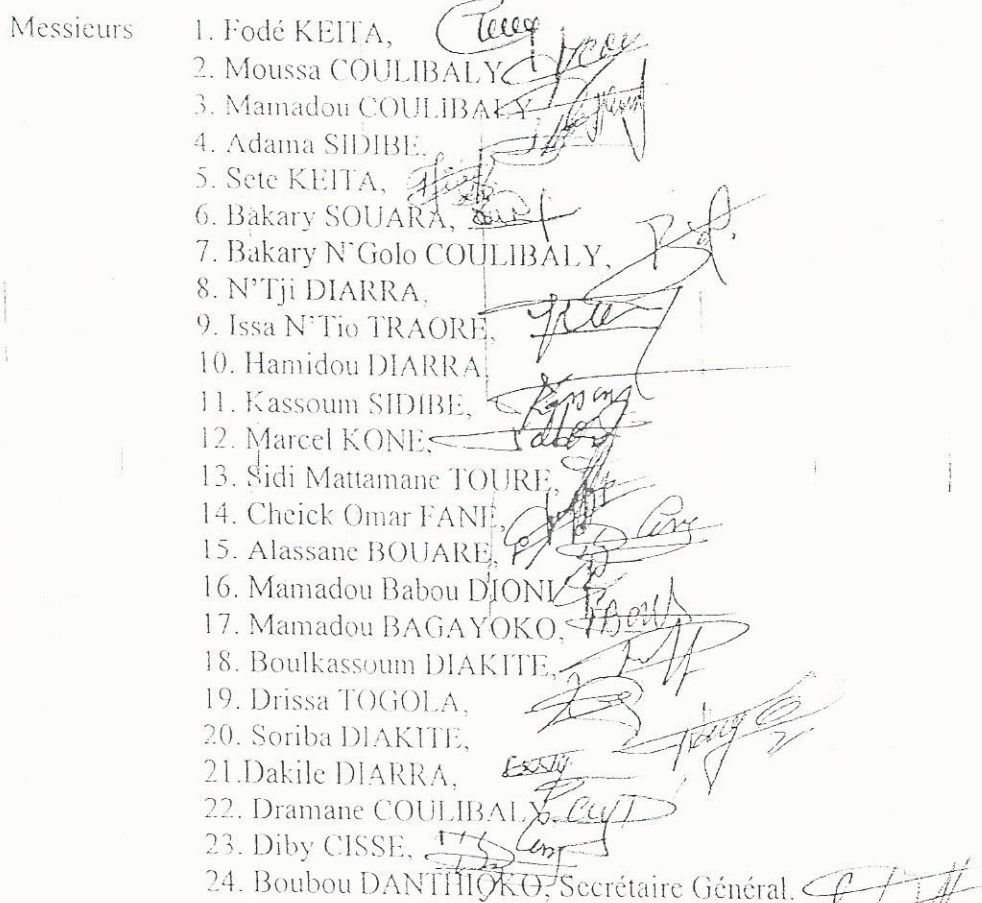 Messieurs 1. Fodé KEITA,
2. Moussa COULIBALY
3. Mamadou COULIBALY,
4. Adama SIDIBE,
5. Sete KEITA,
6. Bakary SOUARA,
7. Bakary N'Golo COULIBALY,
8. N'Tji DIARRA,
9. Issa N'Tio TRAORE,
10. Hamidou DIARRA,
11. Kassoum SIDIBE,
12. Marcel KONE,
13. Sidi Mattamane TOURE,
14. Cheick Omar FANE,
15. Alassane BOUARE,
16. Mamadou Babou DIONI
17. Mamadou BAGAYOKO,
18. Boulkassoum DIAKITE,
19. Drissa TOGOLA,
20. Soriba DIAKITE,
21.Dakile DIARRA,
22. Dramane COULIBALY,
23. Diby CISSE,
24. Boubou DANTHIOKO, Secrétaire Général.